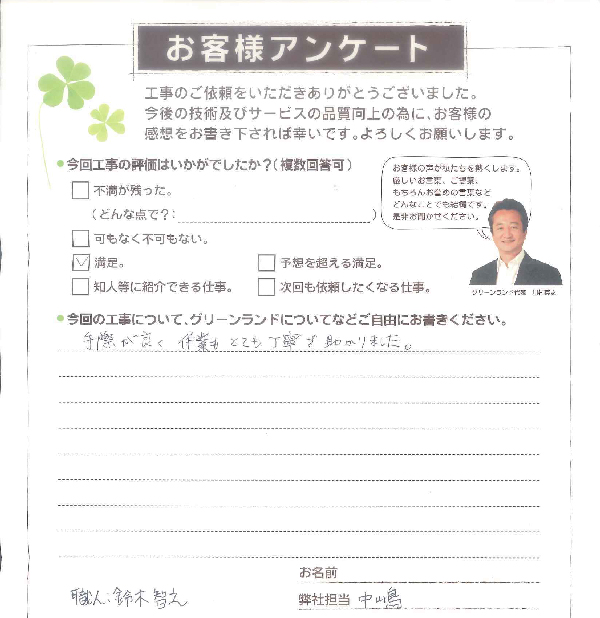 お客様アンケート
工事のご依頼をいただきありがとうございました。
今後の技術及びサービスの品質向上の為に、お客様の
感想をお書き下されば幸いです。よろしくお願いします。
●今回工事の評価はいかがでしたか?(複数回答可)
不満が残った。
(どんな点で?: )
可もなく不可もない。
満足。
予想を超える満足。
知人等に紹介できる仕事。
次回も依頼したくなる仕事。
お客様の声が私たちを熱くします。
厳しいお言葉、ご提案、
もちろんお誉めの言葉など
どんなことでも結構です。
是非お聞かせください。
グリーンランド代表
●今回の工事について、グリーンランドについてなどご自由にお書きください。
手際が良く 作業もとても丁寧で助かりました。
お名前
職人:鈴木智之
弊社担当 中嶋